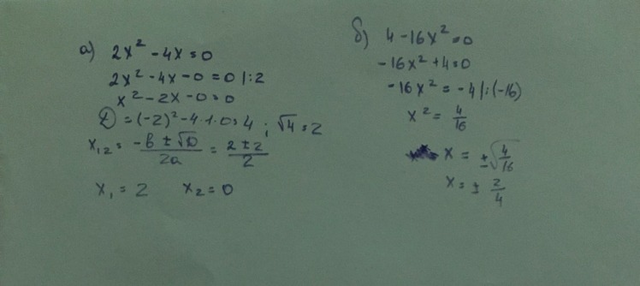 а) 2x² - 4x = 0
2x² - 4x - 0 = 0 |:2
x² - 2x - 0 = 0
D = (-2)² - 4·1·0 = 4 ; √4 = 2
x₁,₂ = (-b ± √D)/2a = (2 ± 2)/2
x₁ = 2 x₂ = 0
б) 4 - 16x² = 0
-16x² + 4 = 0
-16x² = -4 |:(-16)
x² = 4/16
x = ±√(4/16)
x = ± 2/4